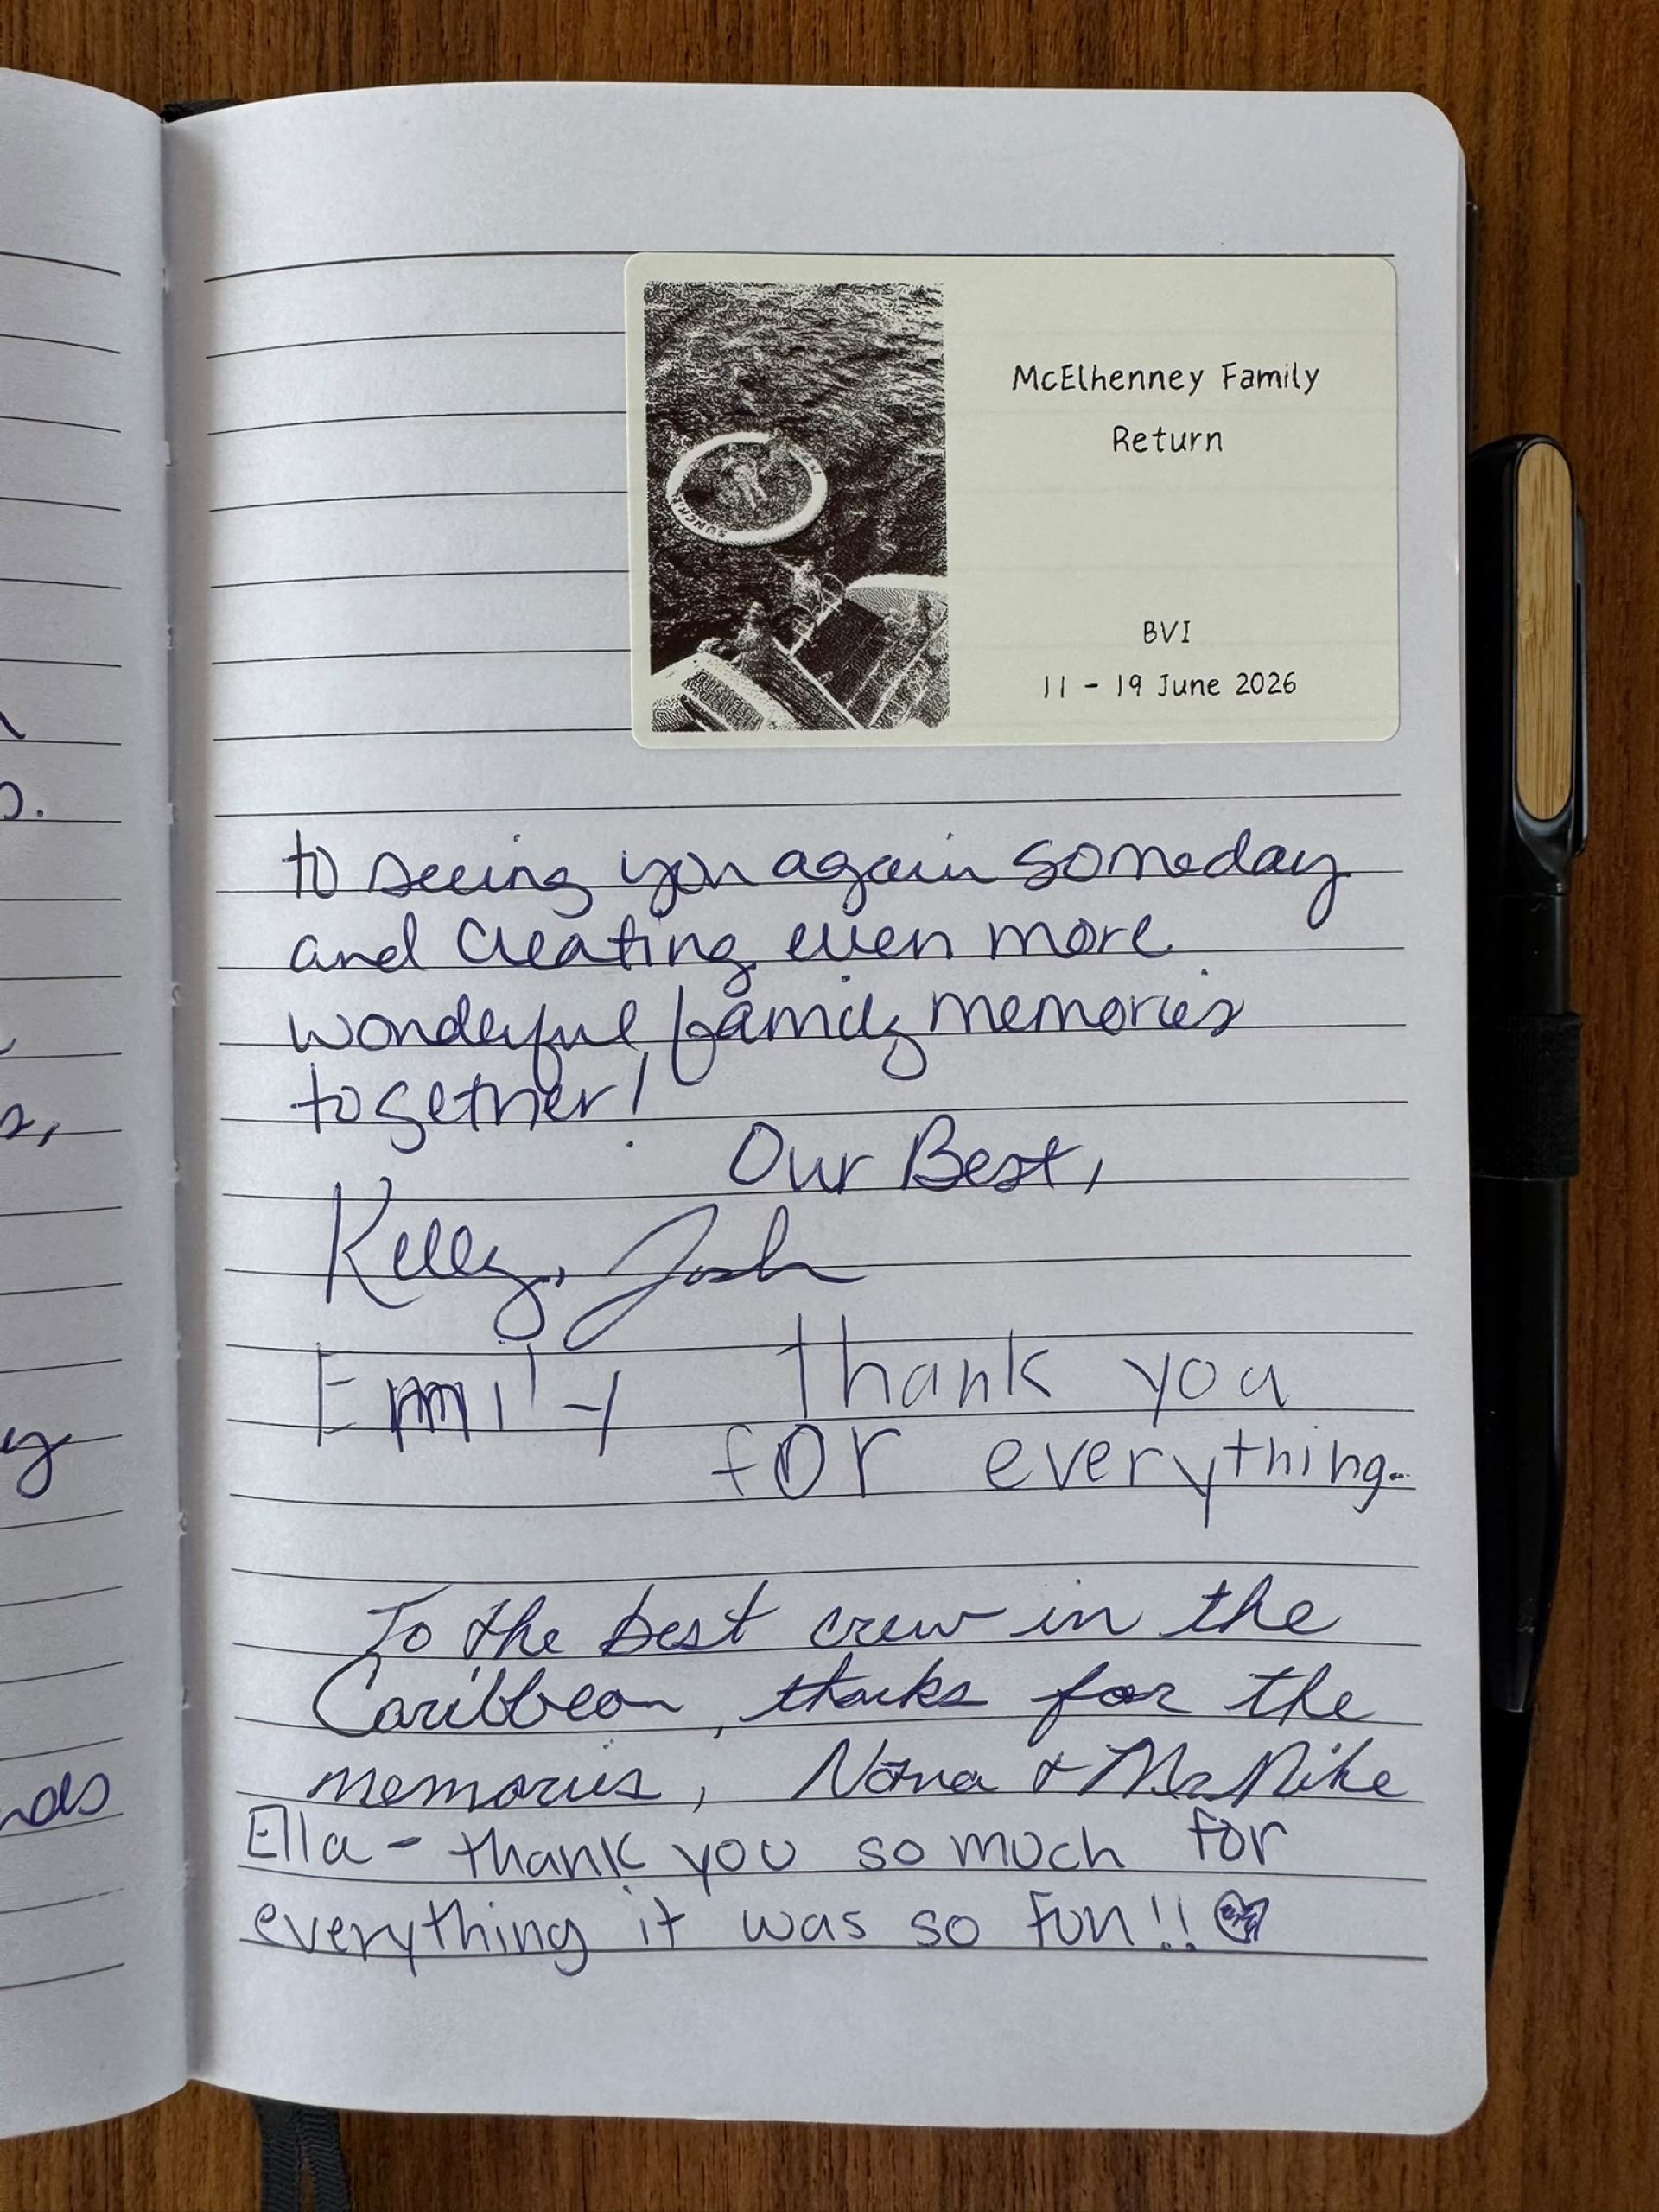 McElhenney Family
Return
BVI
11 - 19 June 2026
to seeing you again someday
and creating even more
wonderful family memories
together!
Our Best,
Kelly, Josh
Emily thank you
for everything.
To the best crew in the
Caribbean, thanks for the
memories, Nona & Mr Mike
Ella - thank you so much for
everything it was so fun!!